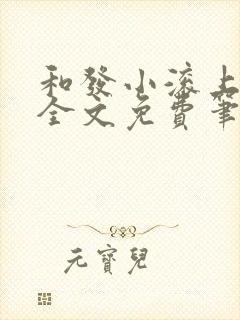 和發小滾上
全文免費筆
元寶兒